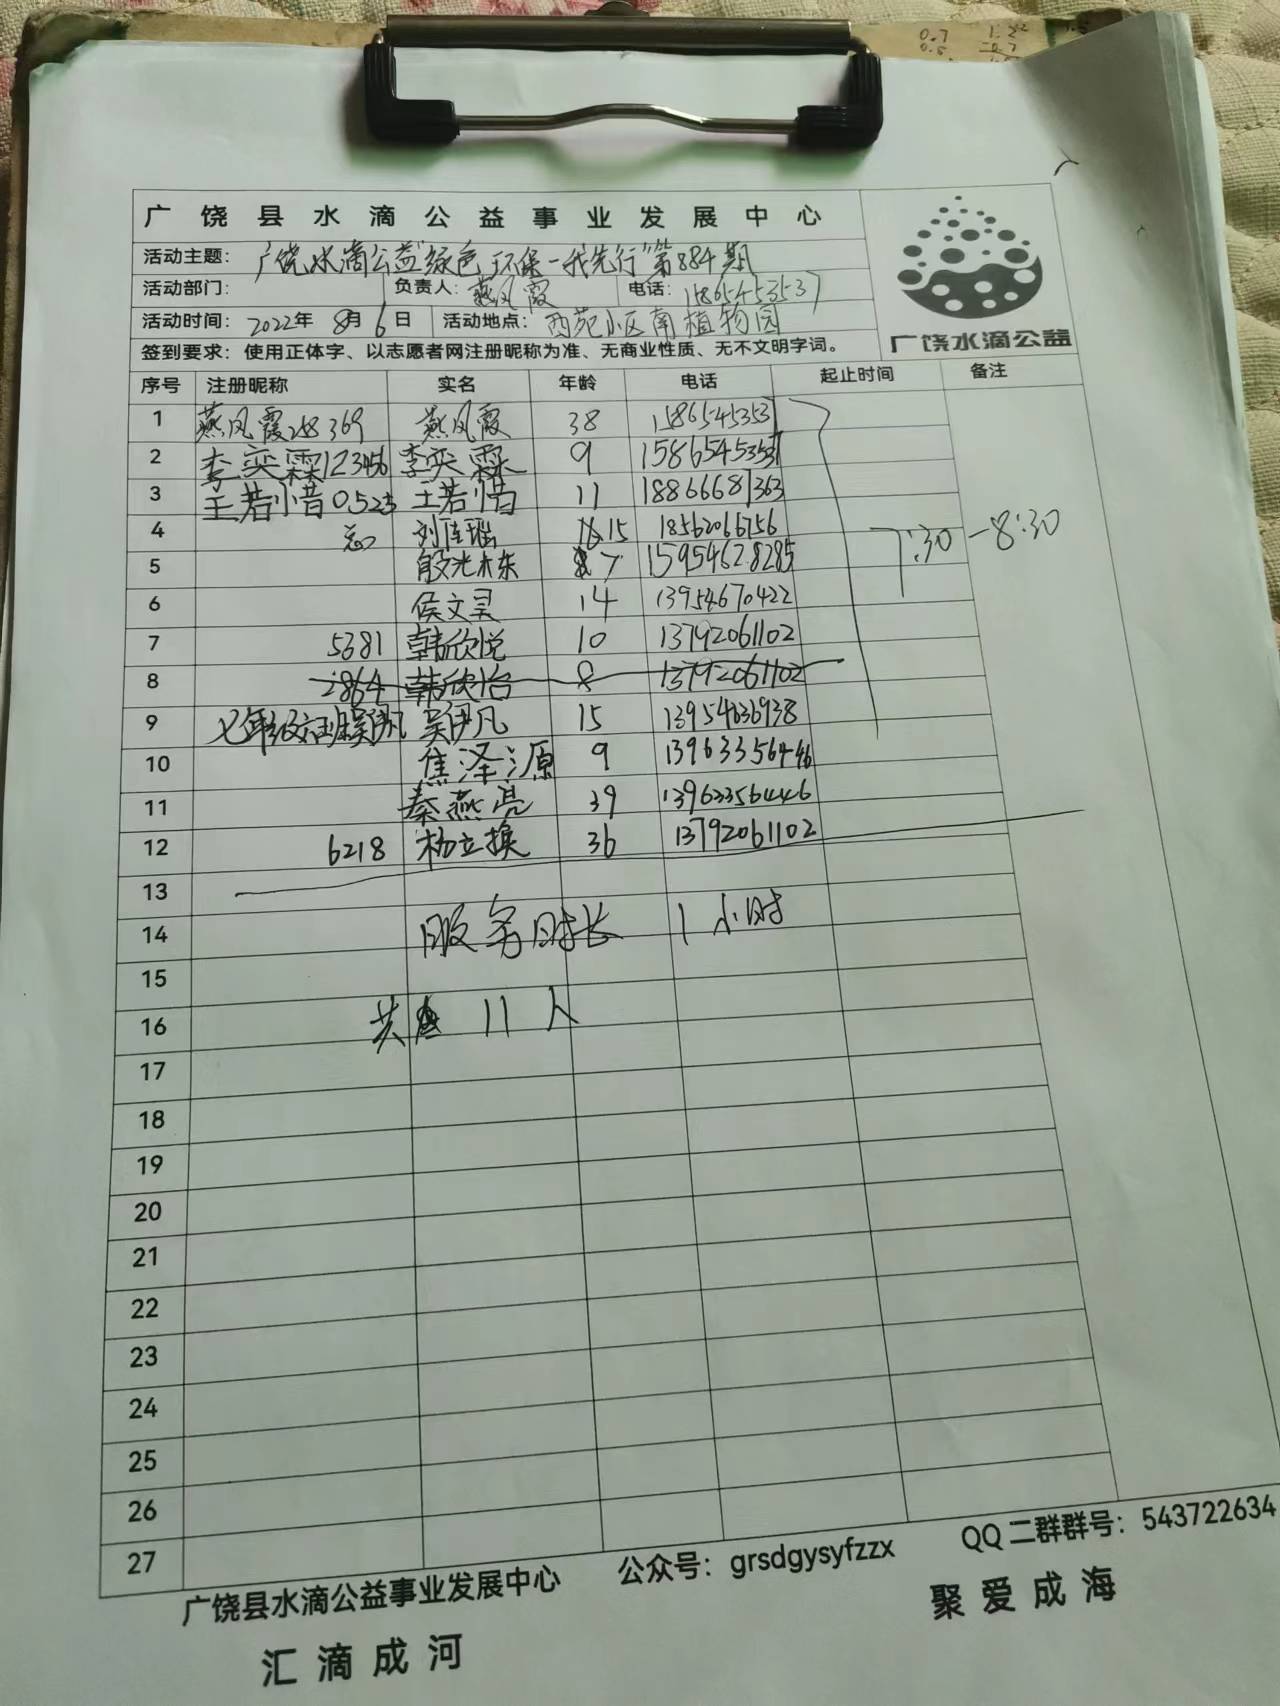 广饶县水滴公益事业发展中心
活动主题：广饶水滴公益"绿色环保-我先行"第884期
活动部门： 负责人：燕风霞 电话：15865453537
活动时间：2022年8月6日 活动地点：西苑小区南植物园
签到要求：使用正体字、以志愿者网注册昵称为准、无商业性质、无不文明字词。
广饶水滴公益
序号 注册昵称 实名 年龄 电话 起止时间 备注
1 燕风霞258369 燕风霞 38 15865453537
2 李奕霖123456 李奕霖 9 15865453537
3 王若惜0523 王若惜 11 18866687363
4 忘 刘佳瑶 15 18562066756
7:30-8:30
5 殷光木东 7 15954628285
6 侯文昊 14 13954670422
7 5381 韩欣悦 10 13792061102
8 2864 韩欣怡 8 13792061102
9 七年级六班吴伊凡 吴伊凡 15 13954636938
10 焦泽源 9 13963356446
11 秦燕亮 39 13963356446
12 6218 杨立换 36 13792061102
13
14 服务时长 1小时
15
16 共 11人
17
18
19
20
21
22
23
24
25
26
27
广饶县水滴公益事业发展中心 公众号：grsdgysyfzzx QQ二群群号：543722634
汇滴成河 聚爱成海